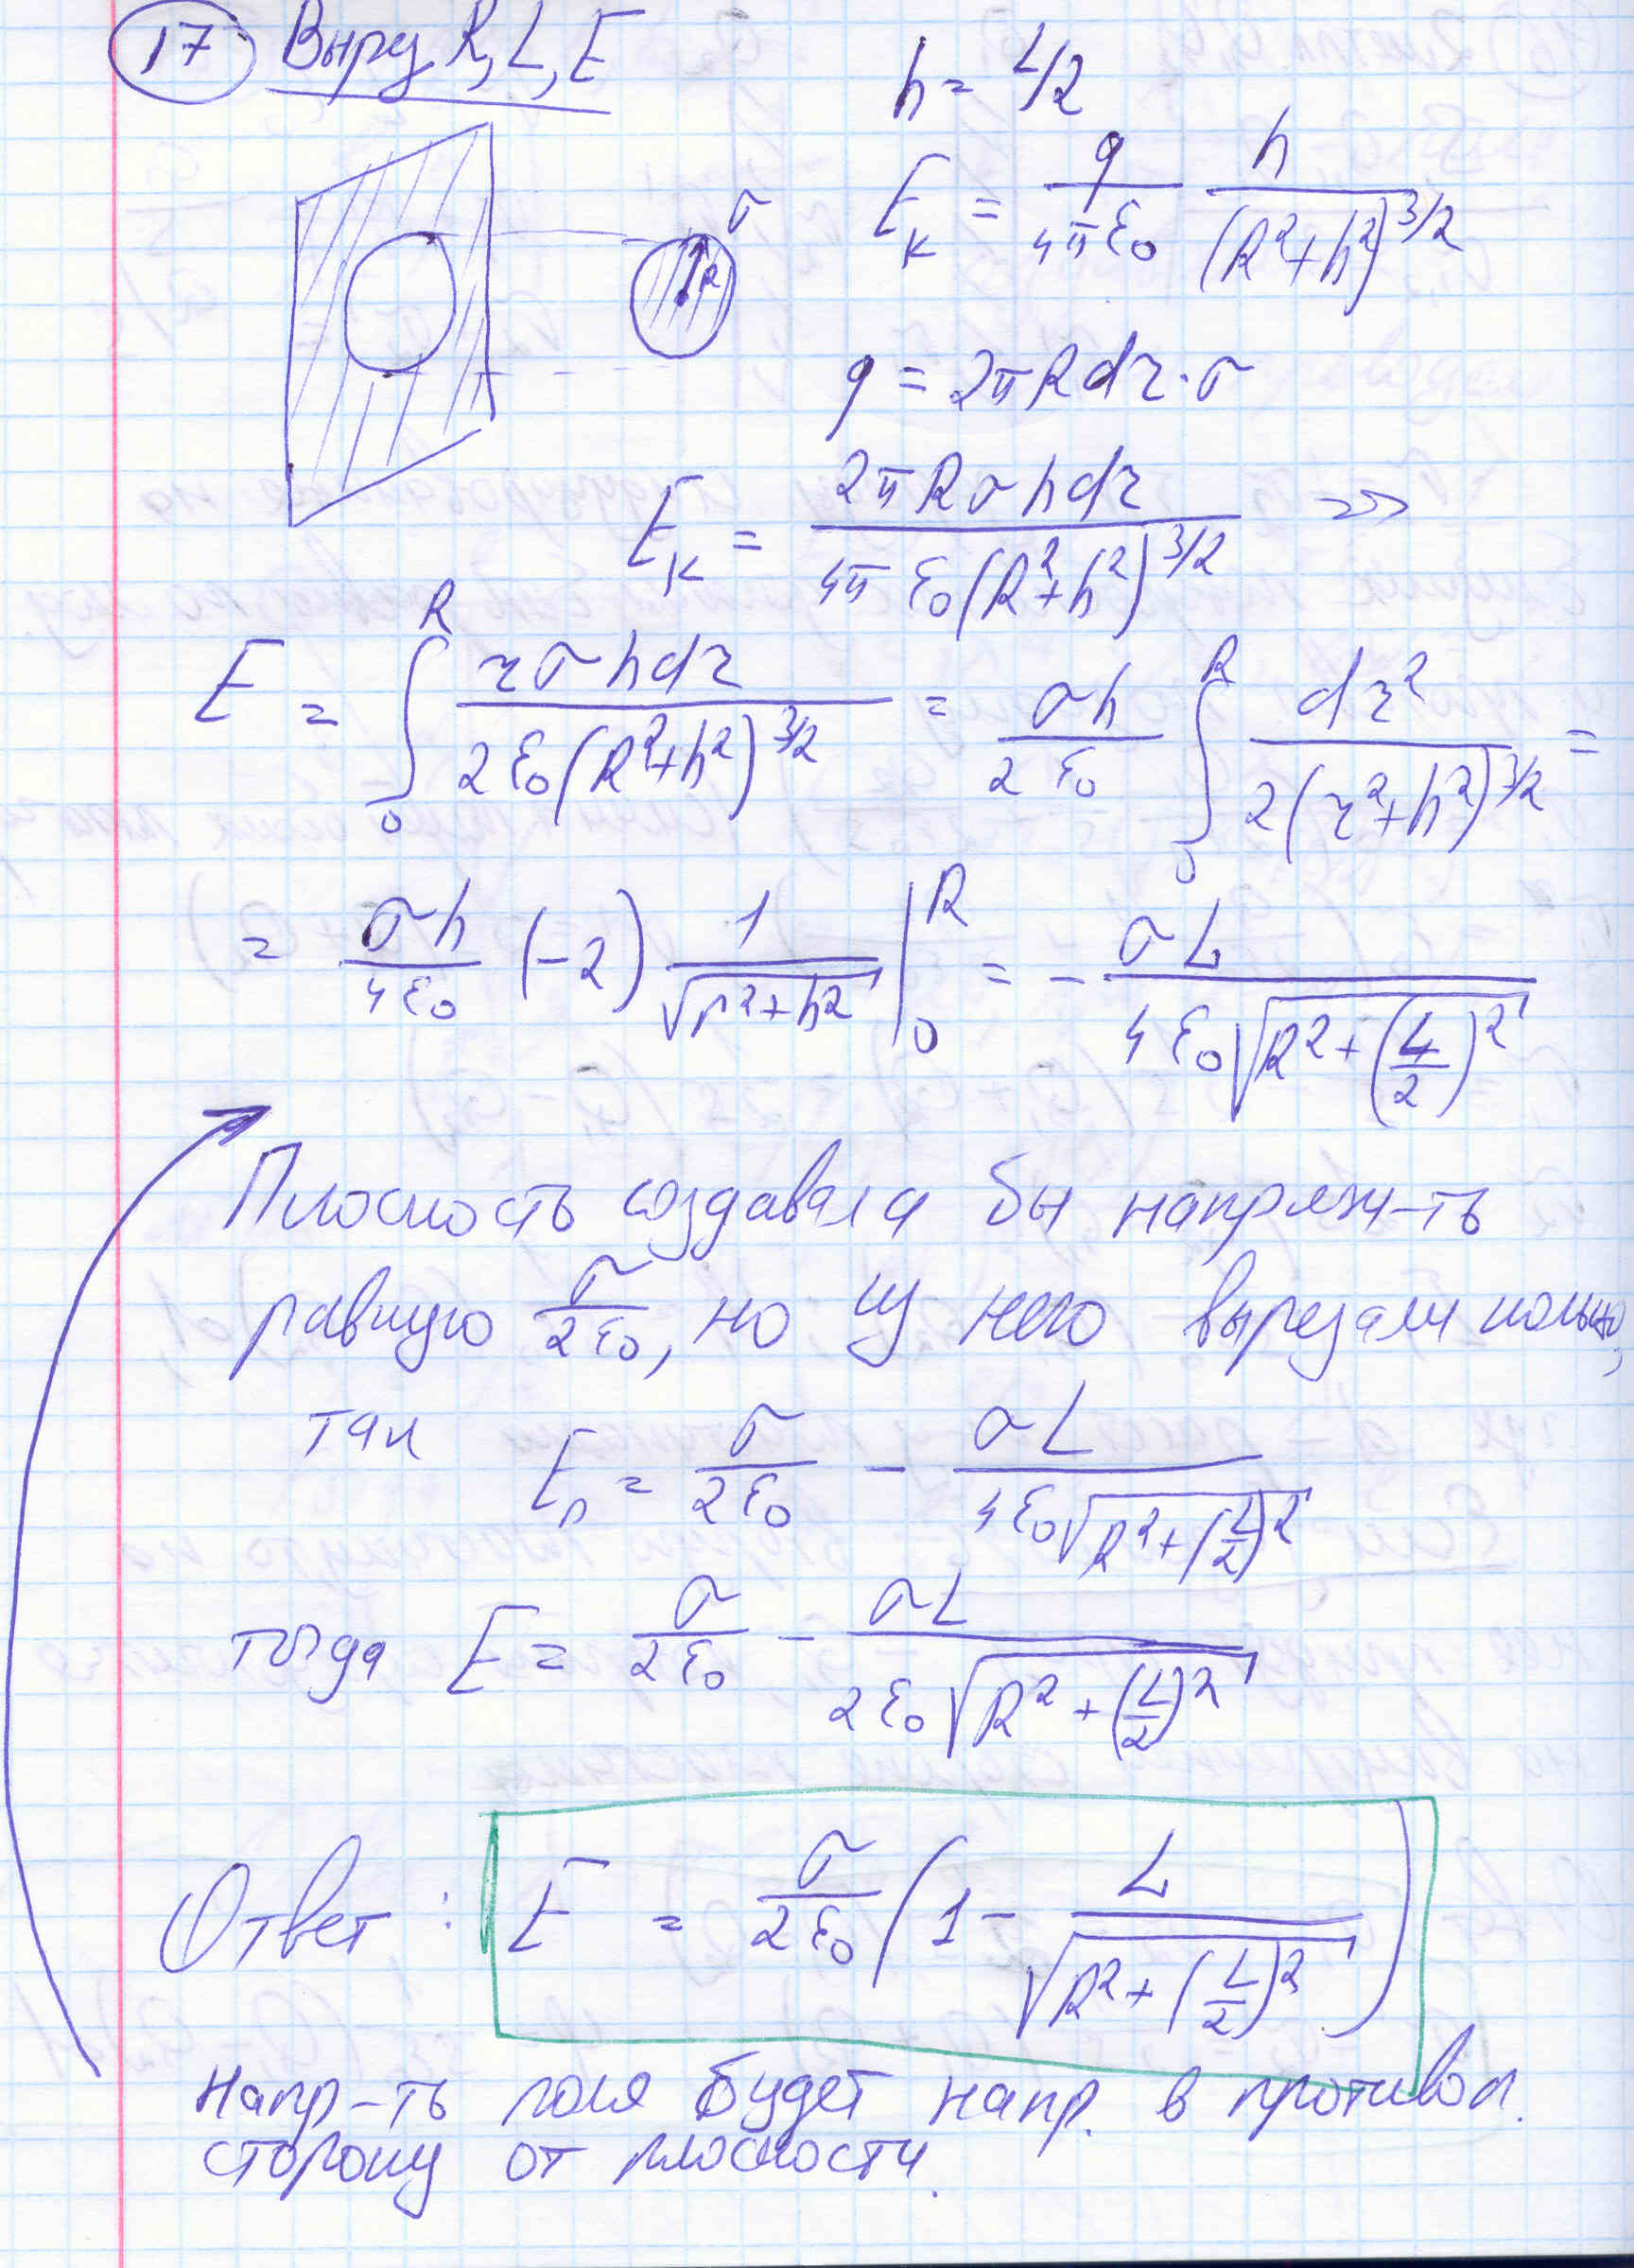 17 Выраз R, L, E
h = L/2
σ
R
E_к = q/(4πε₀) h/(R²+h²)^(3/2)
q = 2πRdr·σ
E_к = 2πRσhdr/(4πε₀(R²+h²)^(3/2)) =>>
E = ∫₀^R rσhdr/(2ε₀(R²+h²)^(3/2)) = σh/(2ε₀) ∫₀^R dr²/(2(r²+h²)^(3/2)) =
= σh/(4ε₀) (-2) 1/√(r²+h²) |₀^R = - σL/(4ε₀√(R²+(L/2)²))
Плоскость создавала бы напряж-ть
равную σ/(2ε₀), но из него вырезали кольцо,
так E_п = σ/(2ε₀) - σL/(4ε₀√(R²+(L/2)²))
тогда E = σ/(2ε₀) - σL/(2ε₀√(R²+(L/2)²))
Ответ: E = σ/(2ε₀) (1 - L/√(R²+(L/2)²))
Напр-ть поля будет напр. в противоп.
сторону от плоскости.